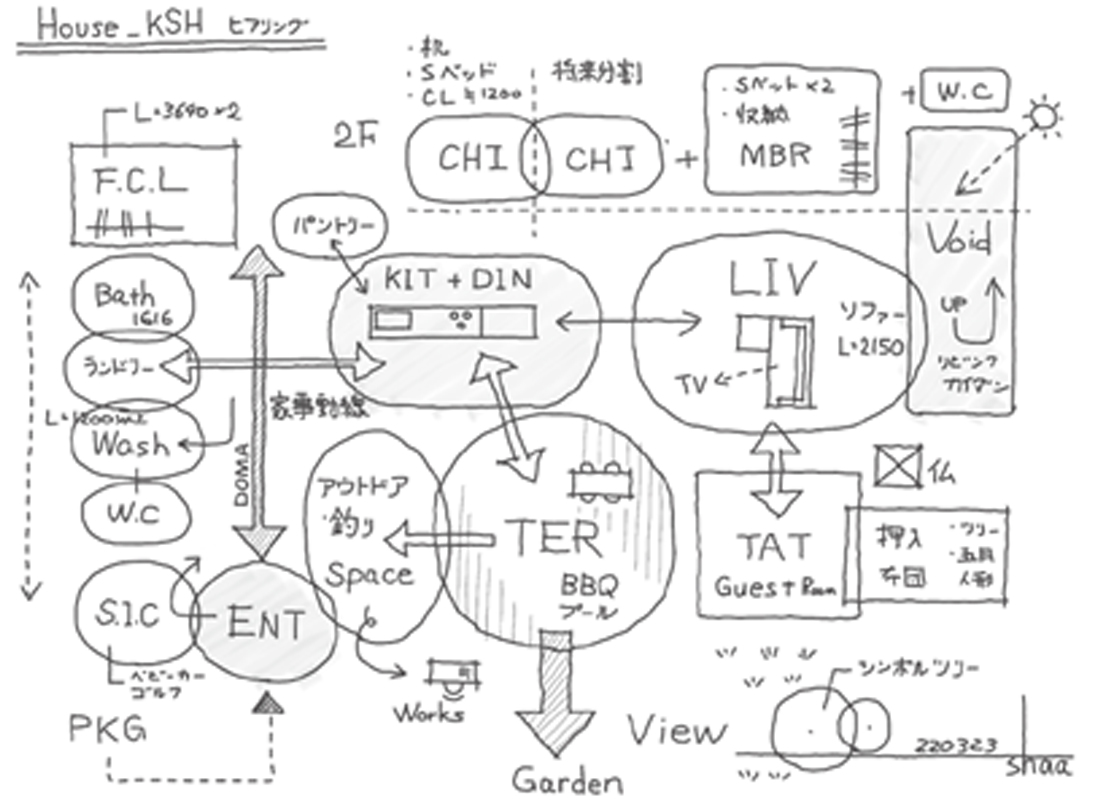 House_KSH ヒアリング
・机
・Sベッド
・CL≒1200
将来分割
2F
CHI
CHI
+
・Sベット×2
・収納
MBR
+
W.C
L=3640×2
F.C.L
パントリー
KIT + DIN
LIV
ソファー
L=2150
TV
Void
UP
リビング
カイダン
Bath
1616
ランドリー
L=1200
Wash
W.C
家事動線
DOMA
アウトドア
・釣り
Space
TER
BBQ
プール
TAT
Guest Room
仏
押入
布団
・ツリー
・五月
人形
S.I.C
ENT
ベビーカー
ゴルフ
PKG
Works
Garden
View
シンボルツリー
220323
shaa